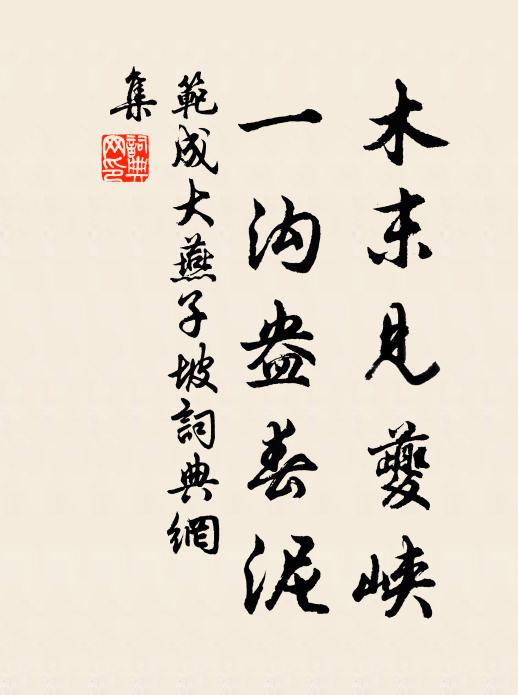 木末見夔峽
一沟盎春泥
範成大燕子坡詞典網
集
詞典
网印